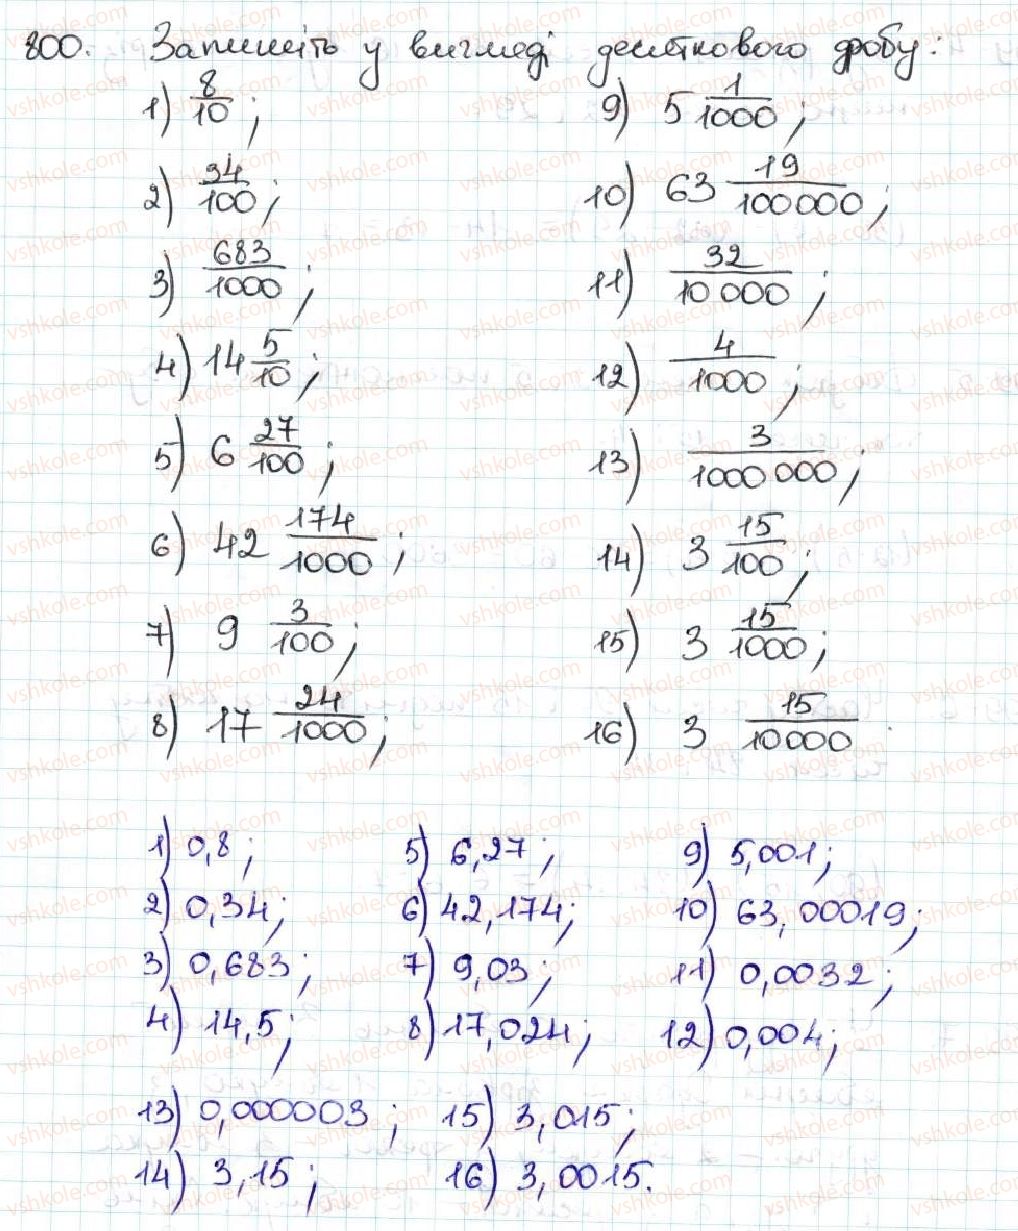 800. Запишіть у вигляді десяткового дробу:
1) 8/10; 9) 5 1/1000;
2) 34/100; 10) 63 19/100 000;
3) 683/1000; 11) 32/10 000;
4) 14 5/10; 12) 4/1000;
5) 6 27/100; 13) 3/1000 000;
6) 42 174/1000; 14) 3 15/100;
7) 9 3/100; 15) 3 15/1000;
8) 17 24/1000; 16) 3 15/10000.
1) 0,8; 5) 6,27; 9) 5,001;
2) 0,34; 6) 42,174; 10) 63,00019;
3) 0,683; 7) 9,03; 11) 0,0032;
4) 14,5; 8) 17,024; 12) 0,004;
13) 0,000003; 15) 3,015;
14) 3,15; 16) 3,0015.